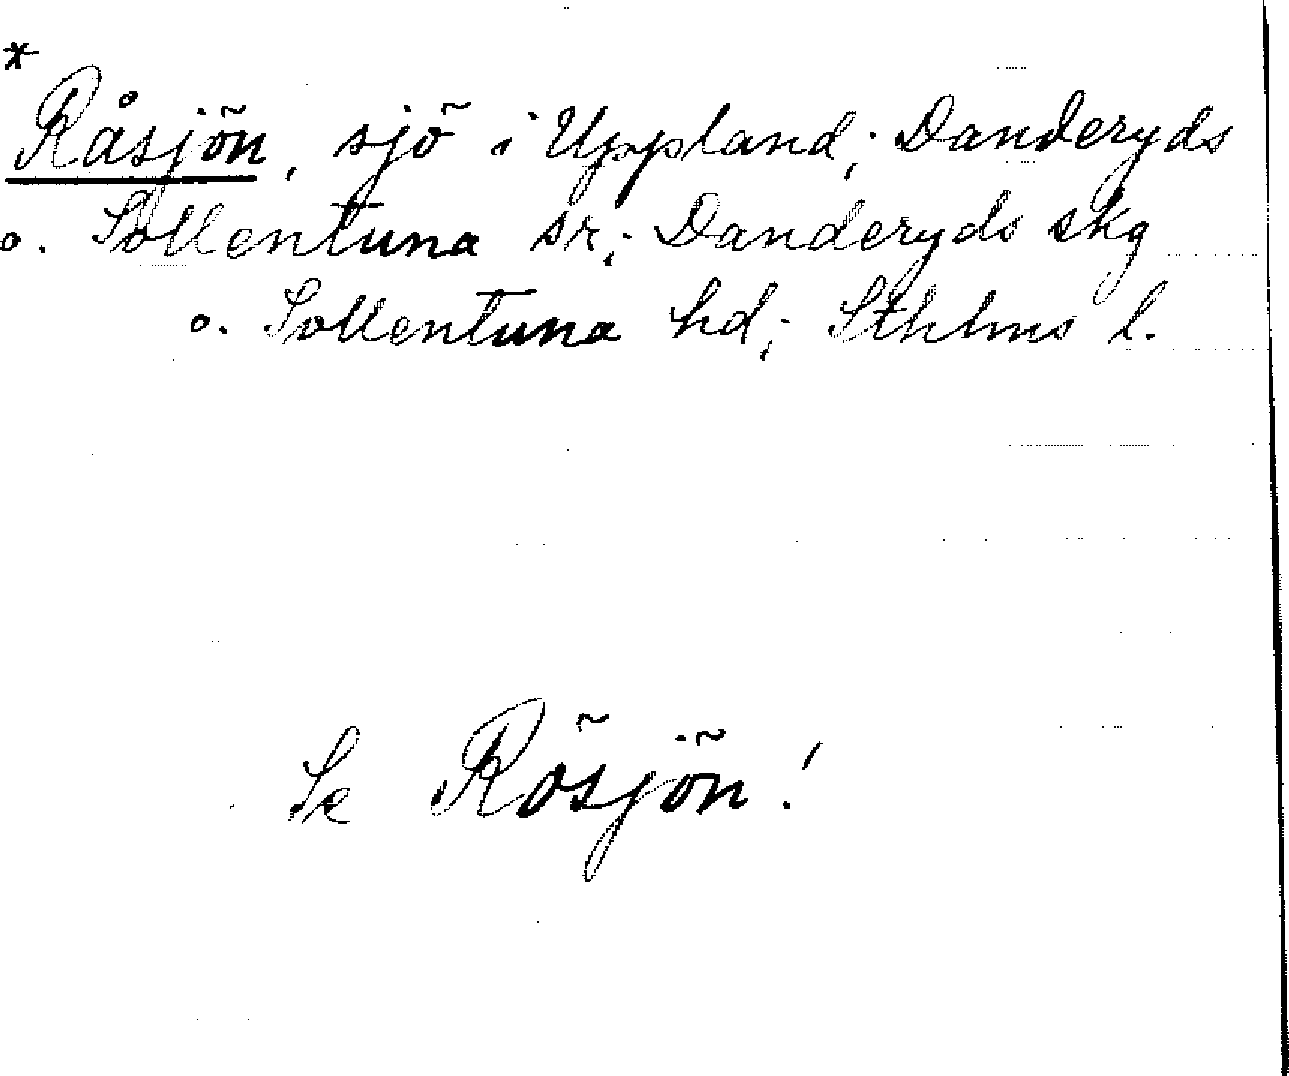 *
Råsjön, sjö i Uppland; Danderyds
o. Sollentuna sr; Danderyds skg
o. Sollentuna hd; Sthlms l.
Se Rösjön!